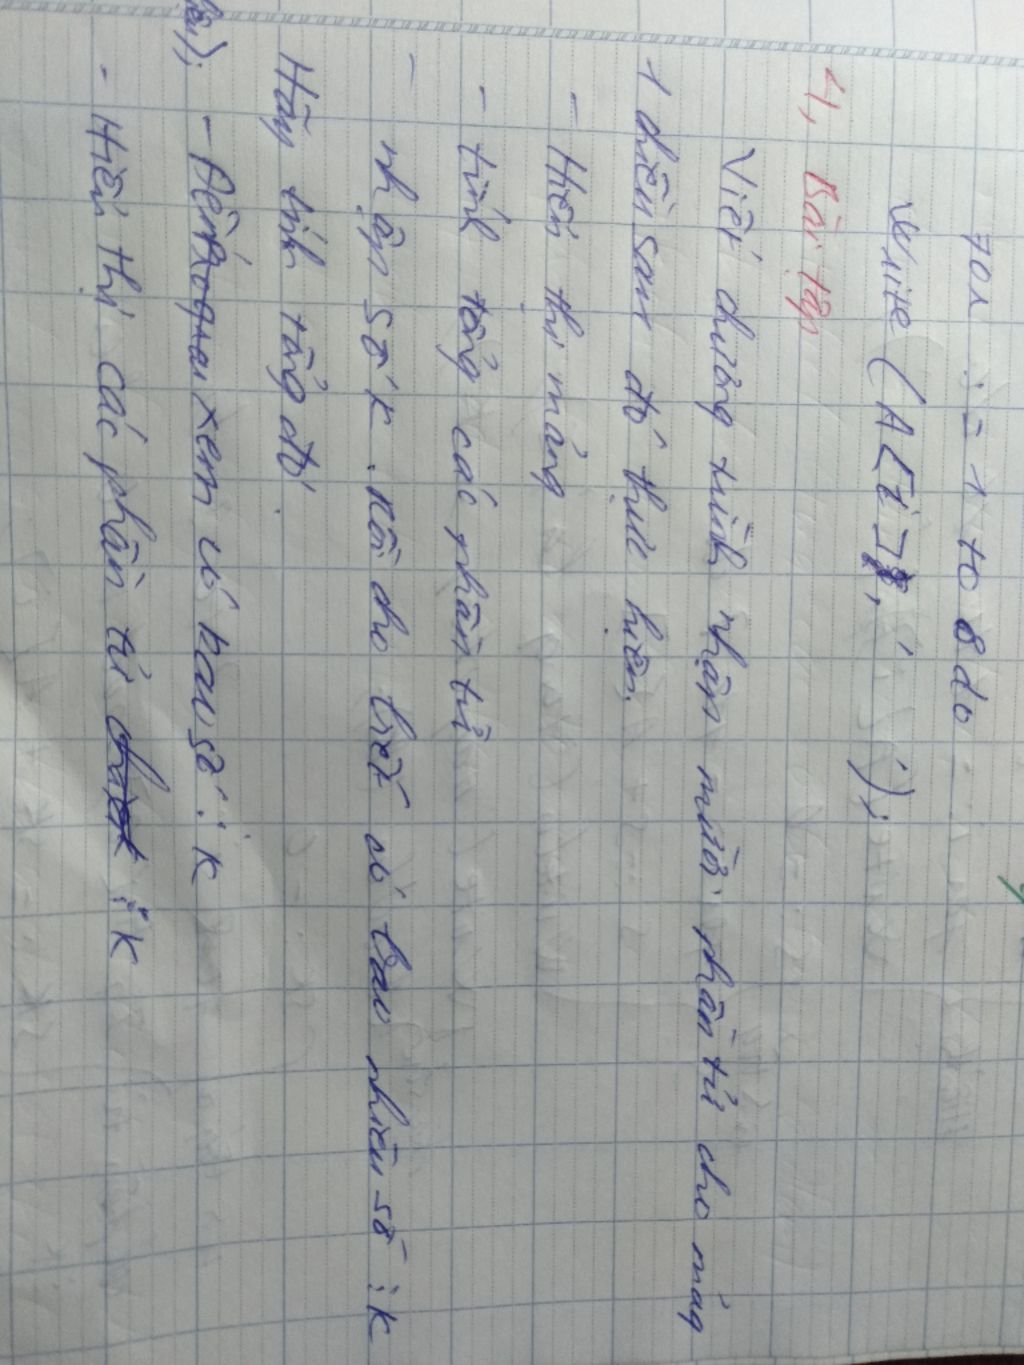 for i := 1 to 8 do
Write (A[i], ' ');
4, Bài tập
Viết chương trình nhận mười phần tử cho mảng
1 chiều sau đó thực hiện.
- Hiển thị mảng
- tính tổng các phần tử
- nhập số k. rồi cho biết có bao nhiêu số ⋮ k
Hãy tính tổng đó.
- xem có bao số ⋮ k
- Hiển thị các phần tử ⋮ k